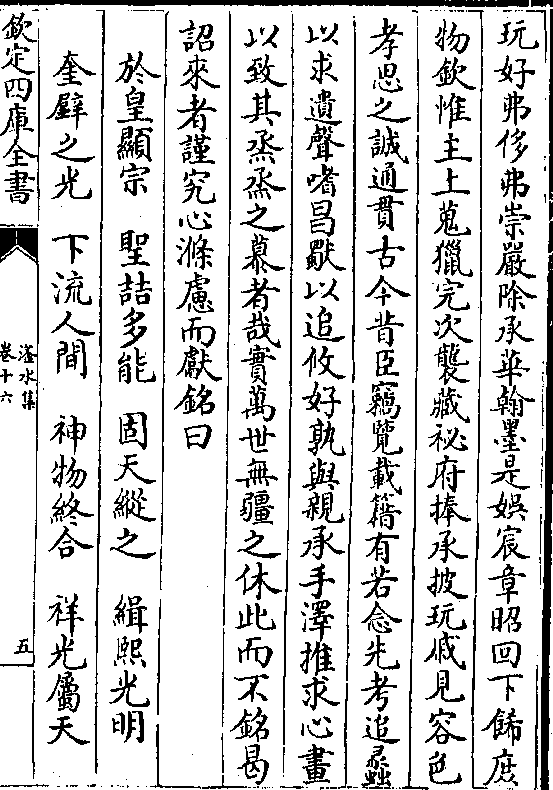 玩好弗侈弗崇嚴除承華翰墨是娛宸章昭回下餙庶
物欽惟主上蒐獵完次襲藏祕府捧承披玩戚見容色
孝思之誠通貫古今昔臣竊覽載籍有若念先考追蠡
以求遺聲嗜昌歜以追攸好孰與親承手澤推求心畫
以致其烝烝之慕者哉實萬世無疆之休此而不銘曷
詔來者謹究心滌慮而獻銘曰
於皇顯宗 聖喆多能 固天縱之 緝熙光明
奎璧之光 下流人間 神物終合 祥光屬天
欽定四庫全書
滏水集
卷十六
五